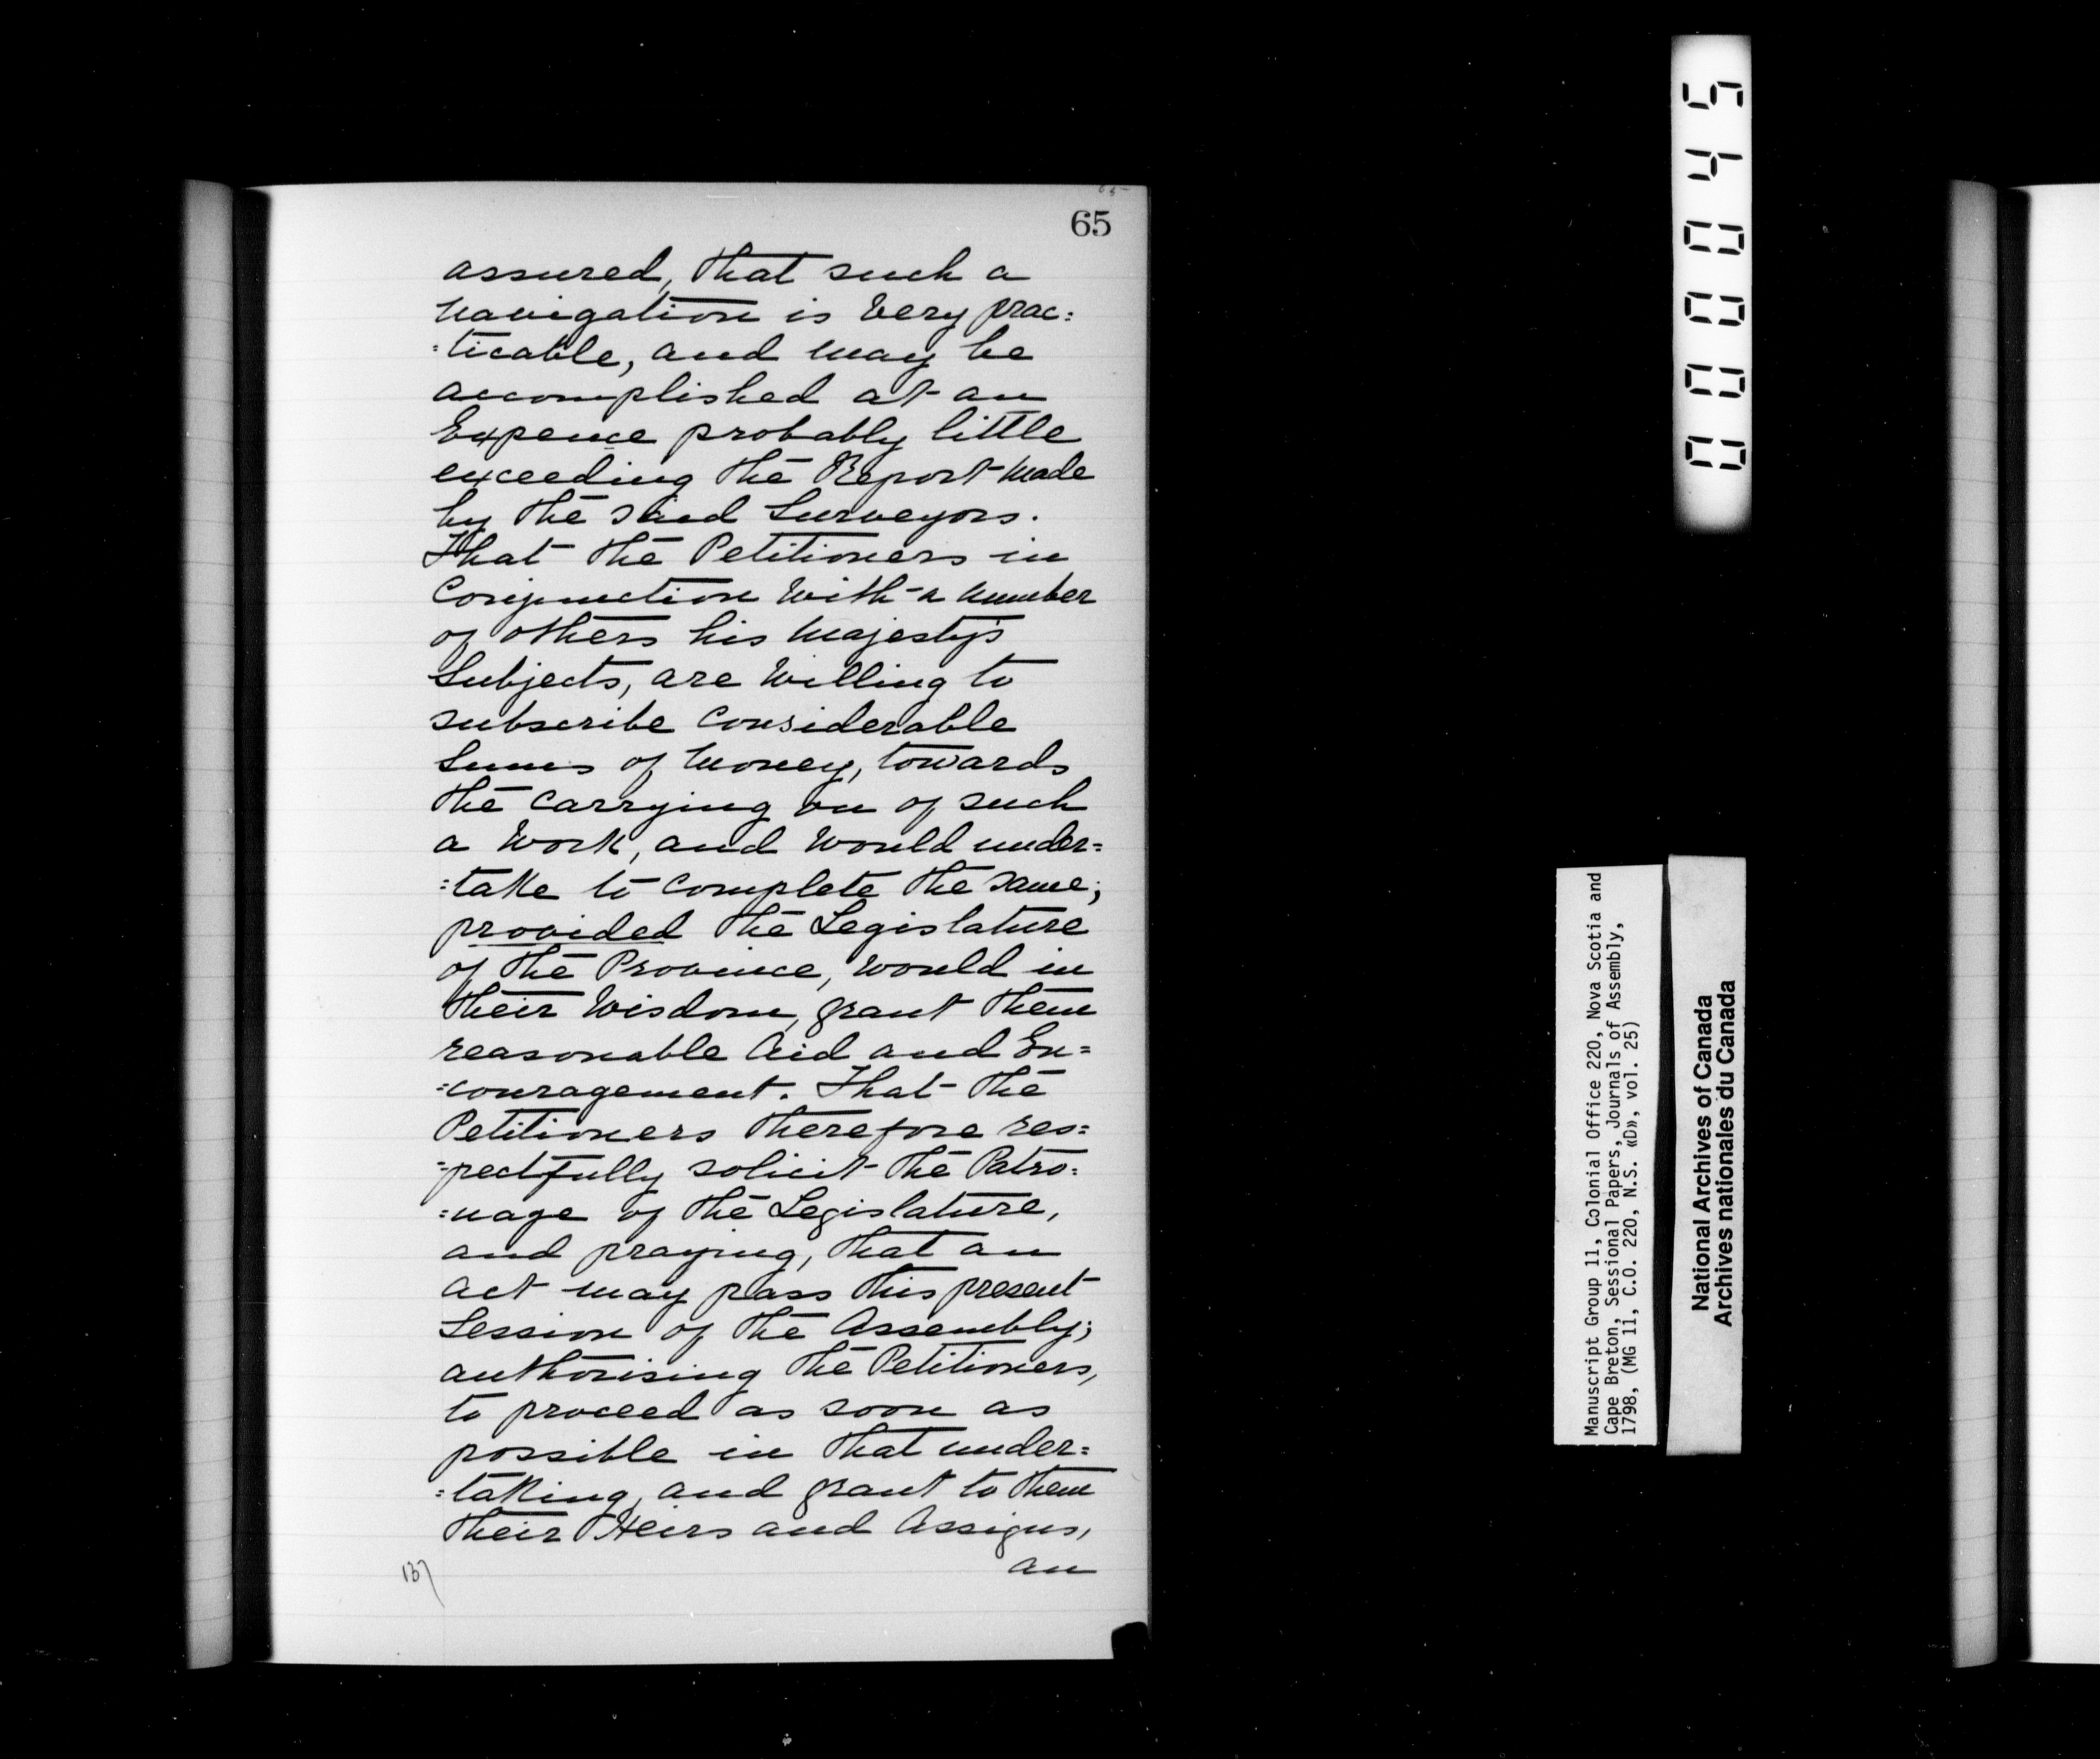 65
65
assured, that such a
navigation is very prac=
=ticable, and may be
accomplished at an
Expence probably little
exceeding the Report made
by the said Surveyors.
That the Petitioners in
Conjunction with a number
of others his Majesty's
Subjects, are willing to
subscribe Considerable
Sums of Money, towards
the carrying on of such
a Work, and would under=
=take to complete the same;
provided the Legislature
of the Province, would in
their Wisdom, grant them
reasonable Aid and En=
=couragement. That the
Petitioners therefore res=
=pectfully solicit the Patro=
=nage of the Legislature,
and praying, that an
Act may pass this present
Session of the Assembly;
authorising the Petitioners,
to proceed as soon as
possible in that under=
=taking, and grant to them
their Heirs and Assigns,
an
137
000045
Manuscript Group 11, Colonial Office 220, Nova Scotia and
Cape Breton, Sessional Papers, Journals of Assembly,
1798, (MG 11, C.O. 220, N.S. «D», vol. 25)
National Archives of Canada
Archives nationales du Canada